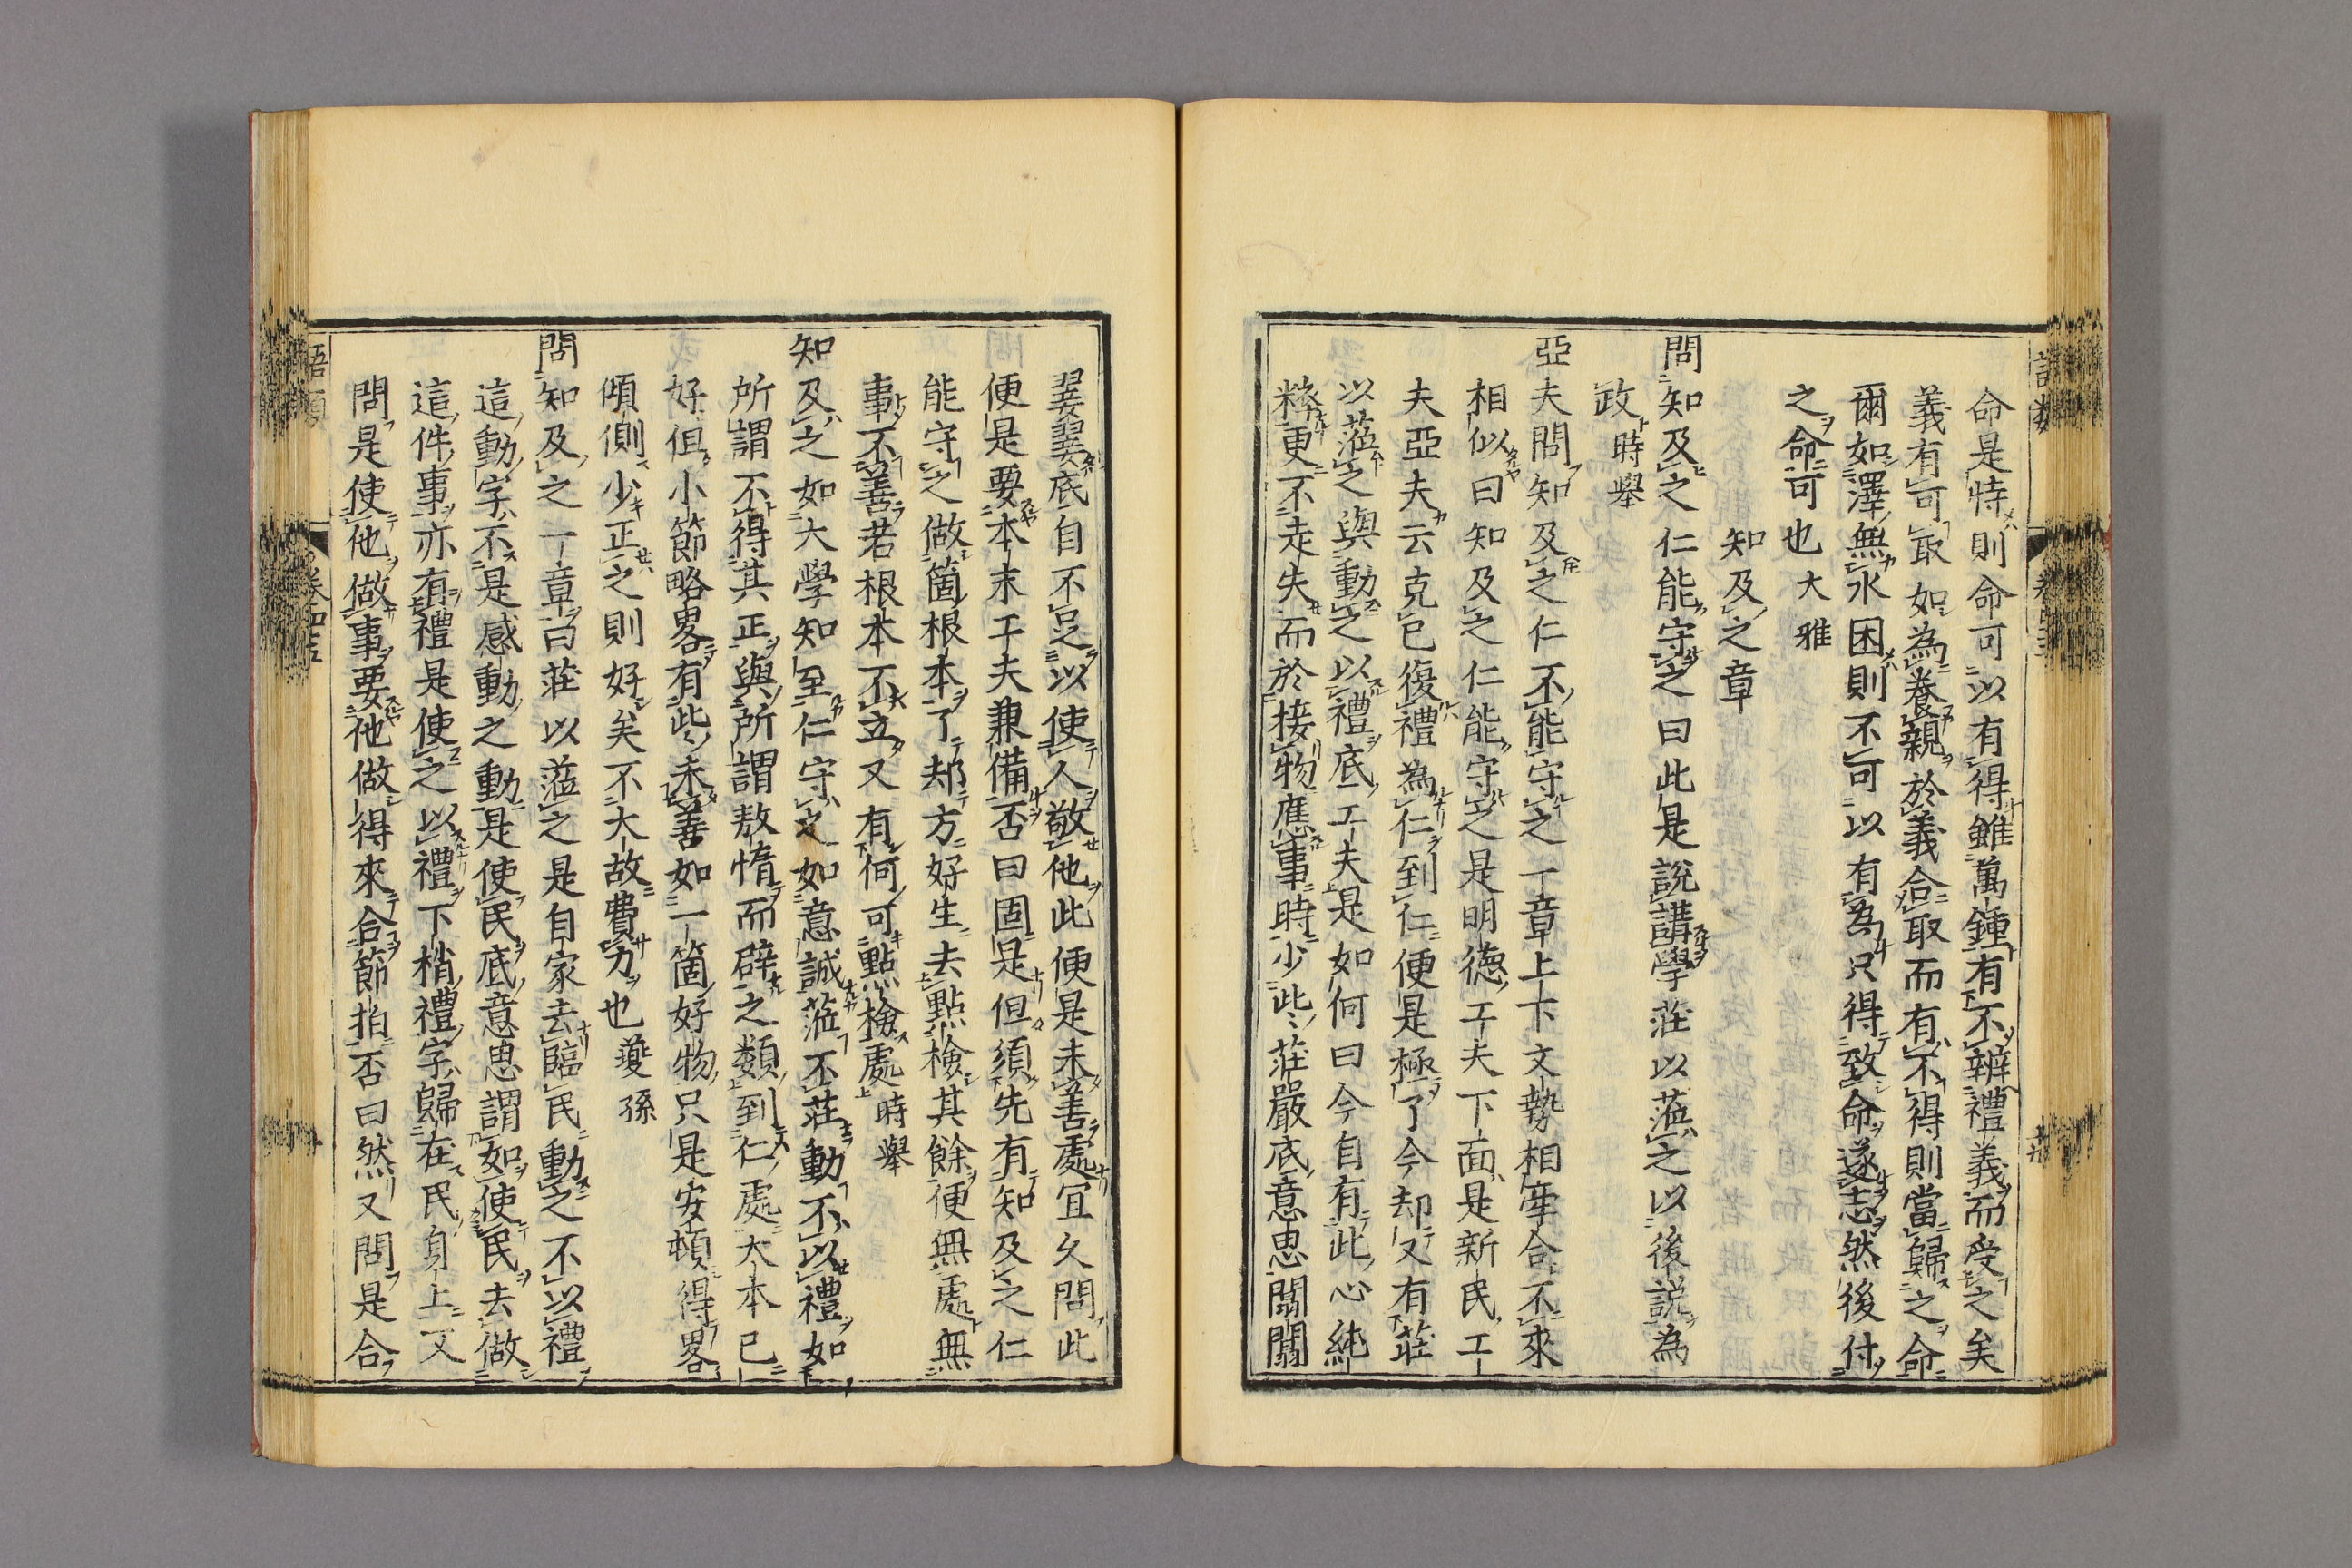 命是恃則命可以有得雖萬鍾有不辨禮義而受之矣
義有可取如為養親於義合取而有不得則當歸之命
爾如澤無水困則不可以有為只得致命遂志然後付
之命可也大雅
知及之章
問知及之仁能守之曰此是說講學莊以蒞之以後說為
政時舉
亞夫問知及之仁不能守之一章上下文勢相牽合不來
相似曰知及之仁能守之是明德工夫下面是新民工
夫亞夫云克已復禮為仁到仁便是極了今却又有莊
以蒞之與動之以禮底工夫是如何曰今自有此心純
粹更不走失而於接物應事時少些莊嚴底意思闒闒
翣翣底自不足以使人敬他此便是未善處宜久問此
便是要本末工夫兼備否曰固是但須先有知及之仁
能守之做箇根本了却方好生去點檢其餘便無處無
事不善若根本不立又有何可點檢處時舉
知及之如大學知至仁守之如意誠蒞不莊動不以禮如
所謂不得其正與所謂敖惰而辟之類到仁處大本已
好但小節略畧有些未善如一箇好物只是安頓得畧
傾側少正之則好矣不大故費力也蘷孫
問知及之一章曰莊以蒞之是自家去臨民動之不以禮
這動字不是感動之動是使民底意思謂如使民去做
這件事亦有禮是使之以禮下梢禮字歸在民身上又
問是使他做事要他做得來合節拍否曰然又問是合
語類